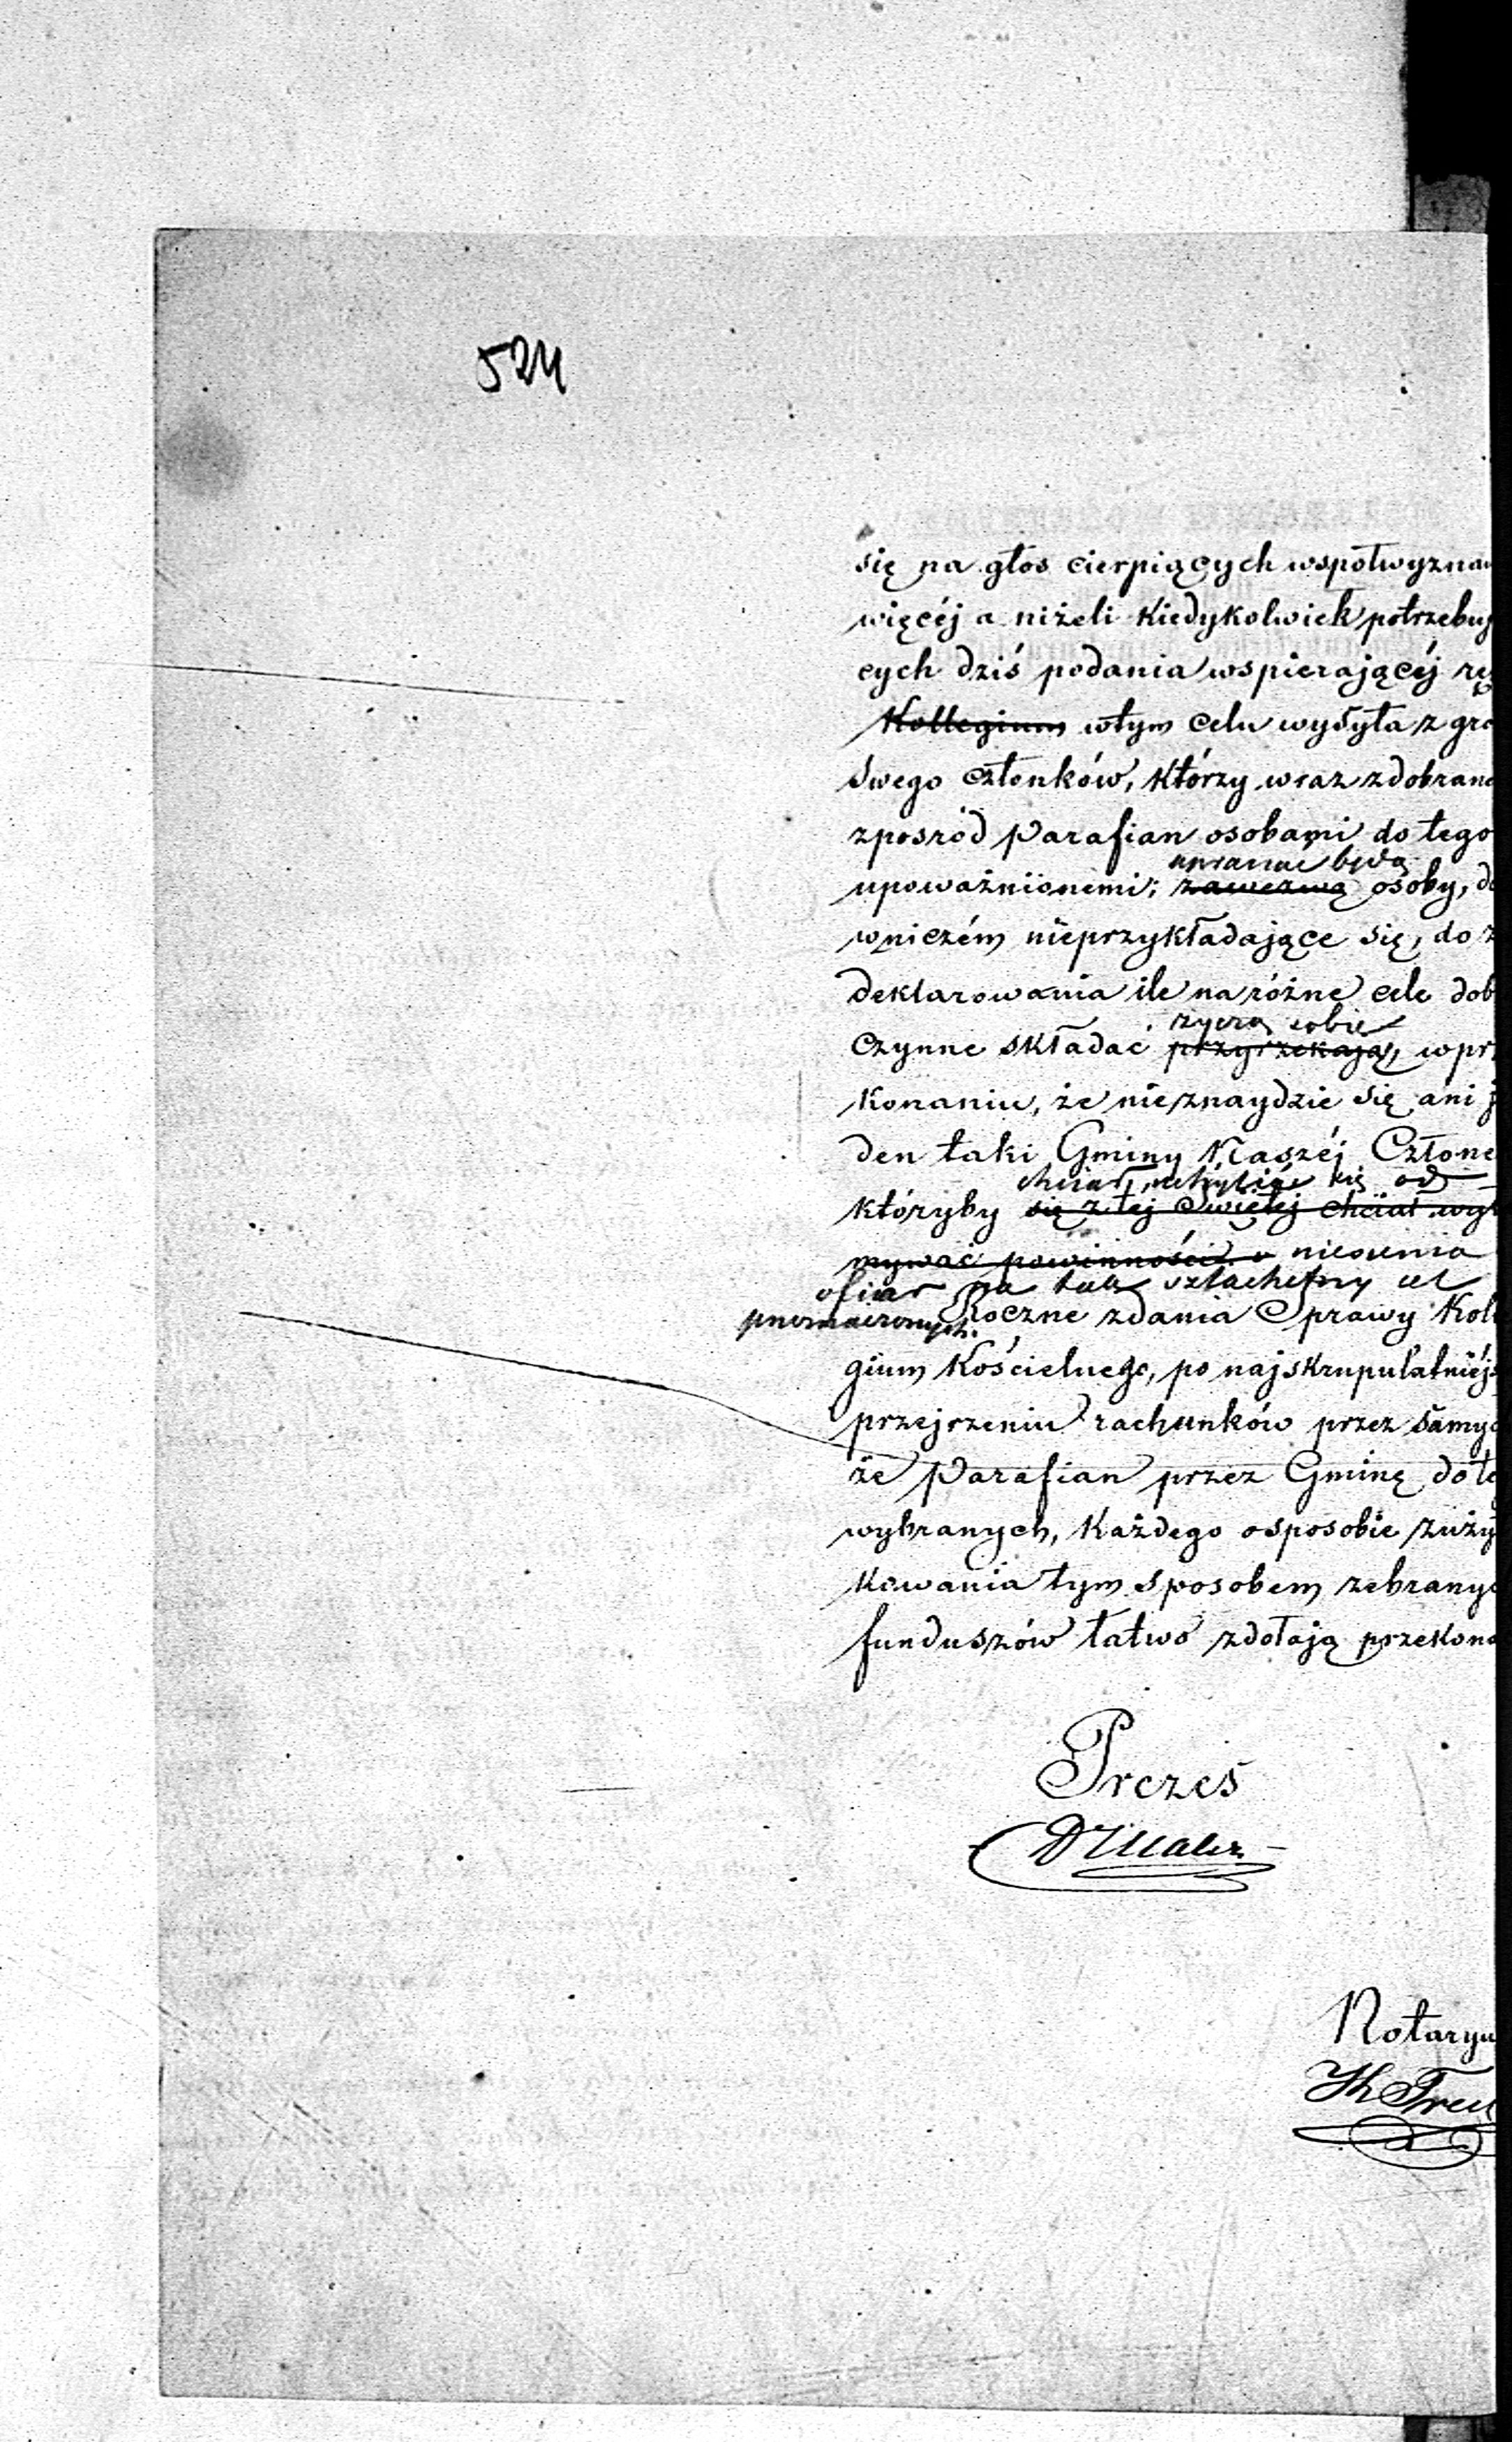 524
się na głos cierpiących wspołwyznaw
więcéj a niżeli kiedykolwiek potrzebuj
cych dziś podania wspierającéj rę
Kollegium w tym celu wysyła z gro
swego członków, którzy wraz z dobrane
zpośród Parafian osobami do tego
upraszać będą
upoważnionemi; zawezwą osoby, do
wniczém nieprzykładające się, do z
deklarowania ile na różne cele dob
życzą sobie
czynne składać przyrzekają, w prz
konaniu, że nieznaydzie się ani j
den taki Gminy Naszéj Człone
chciał uchylić się od
któryby się z tej Świętej chciał wył
mywać powinności niesienia
ofiar na tak szlachetny cel
Roczne zdania Sprawy Kol
gium Kościelnego, po najskrupulatniéj
przejrzeniu rachunków przez samyc
że Parafian przez Gminę do te
wybranych, każdego o sposobie zuży
kowania tym sposobem zebranyc
funduszów łatwo zdołają przekona
Prezes
Notaryu